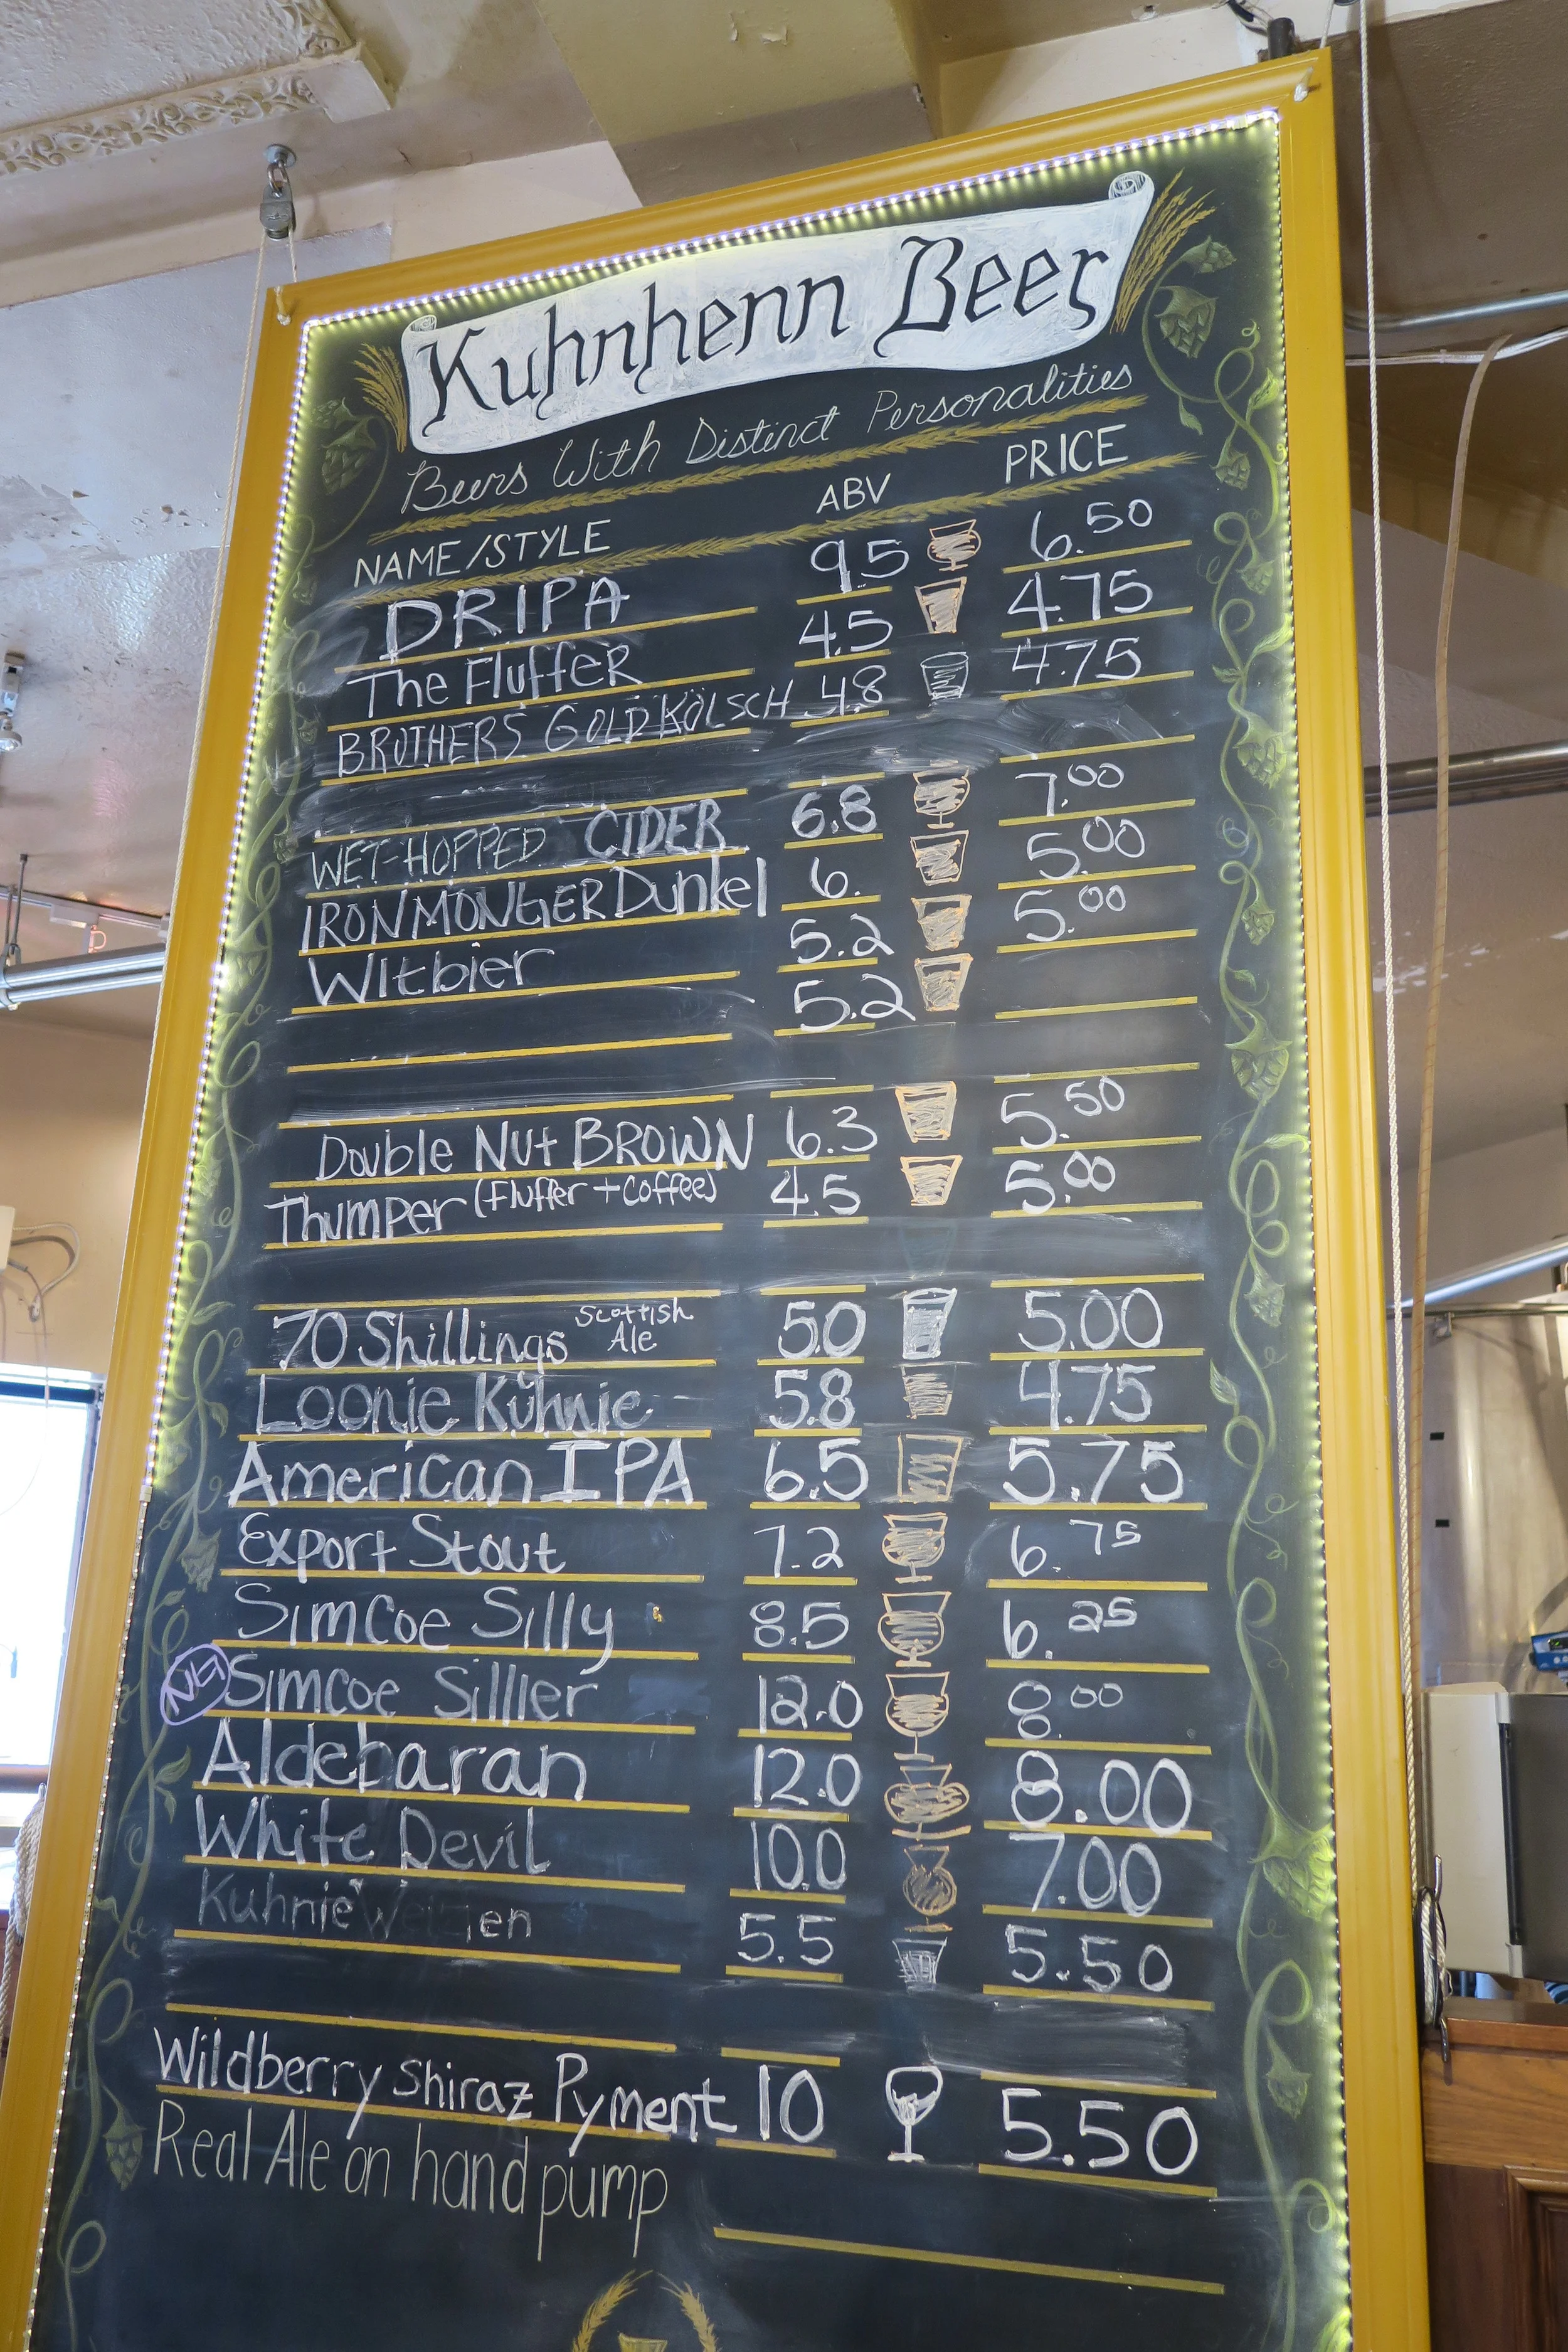 Kuhnhenn Beer
Beers With Distinct Personalities
NAME/STYLE ABV PRICE
DRIPA 9.5 6.50
The Fluffer 4.5 4.75
BROTHERS GOLD KÖLSCH 4.8 4.75
WET-HOPPED CIDER 6.8 7.00
IRONMONGER Dunkel 6. 5.00
Witbier 5.2 5.00
5.2
Double Nut BROWN 6.3 5.50
Thumper (Fluffer + Coffee) 4.5 5.00
70 Shillings Scottish Ale 5.0 5.00
Loonie Kuhnie 5.8 4.75
American IPA 6.5 5.75
Export Stout 7.2 6.75
Simcoe Silly 8.5 6.25
Simcoe Sillier 12.0 8.00
Aldebaran 12.0 8.00
White Devil 10.0 7.00
Kuhnie 5.5 5.50
Wildberry Shiraz Pyment 10 5.50
Real Ale on hand pump